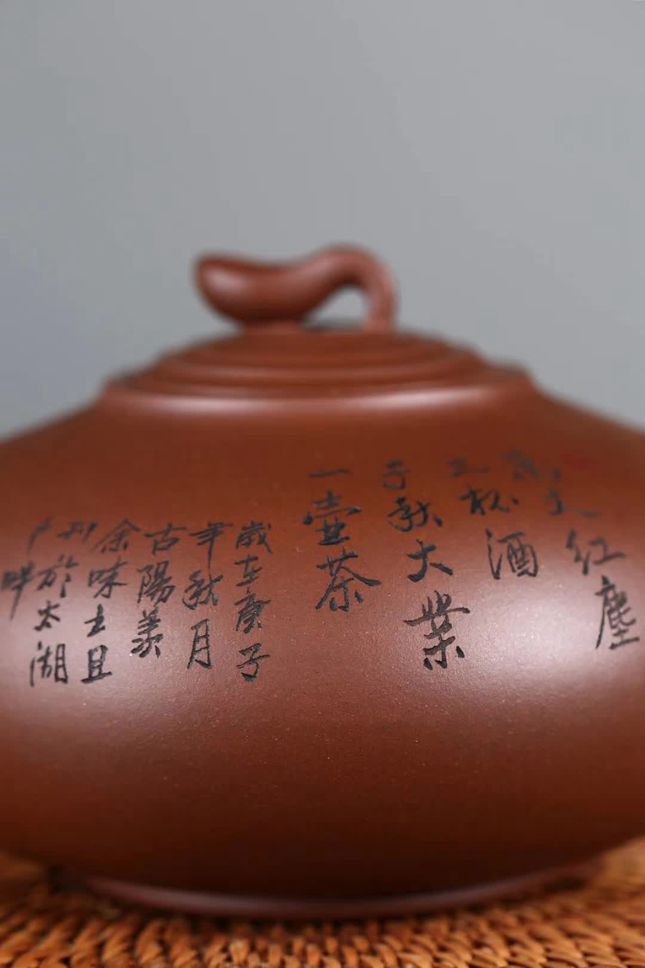 萬丈红塵
三杯酒
千秋大業
一壺茶
歲在庚子
年秋月
古陽羨
余味士且
刊於太湖
畔